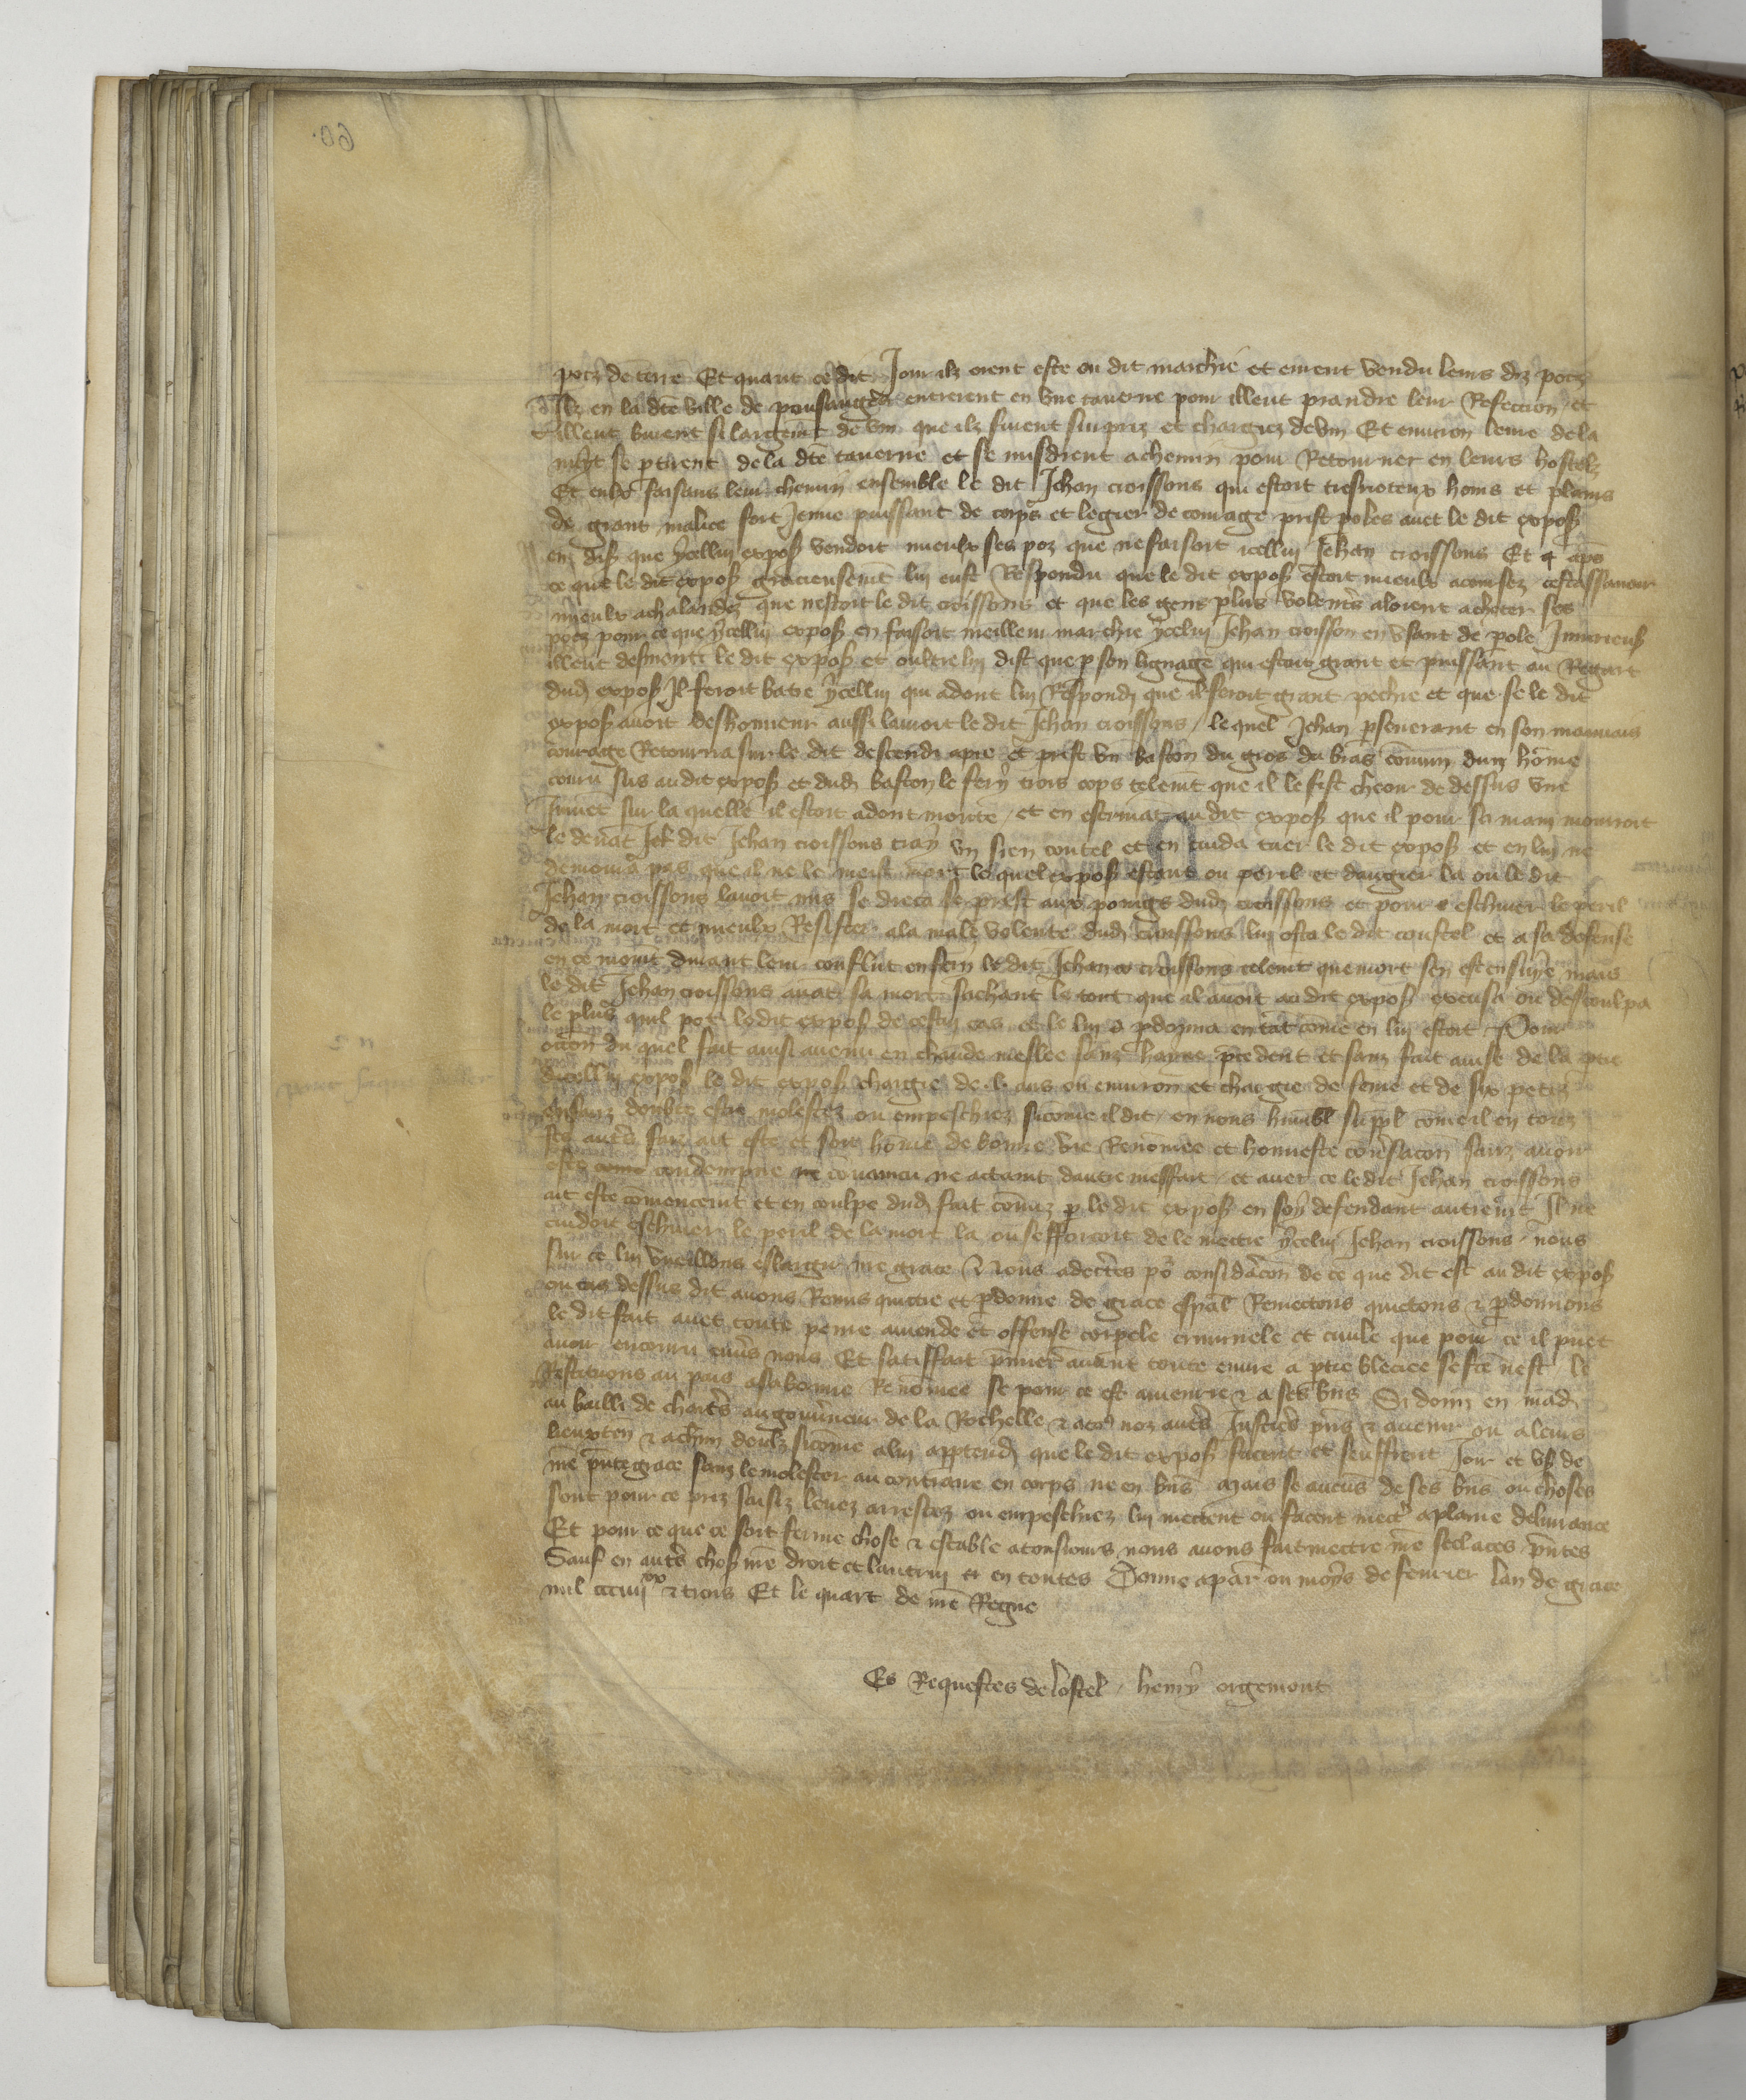 poz de terre Et quant ce dit Jour ilz orent este ou dit marchie et eurent vendu leurs diz poz
Ilz en la dcē ville de pousauges entrerent en vne tauerne pour illeuc prandre leur Refeccion et
illeuc burent si largemt de vin que ilz furent surpriz et chargiez de vin Et enuiron leure de la
nuyt se ptirent de la dcē tauerne et se misdrent a chemin pour Retourner en leurs hostelz
Et eulx faisans leur chemin ensemble le dit Jehan croissons qui estoit tresrioteux homs et plains
de grant malice fort Jeune puissant de corps et legier de courage prist poles auec le dit expos
en dis que ycellui expos vendoit mieulx ses poz que ne faisoit icellui Jehan croissons Et q apš
ce que le dit expos gracieusemt lui eust Respondu que le dit expos estoit mieulx acoursez cestassauoir
mieulx achalandez que nestoit le dit croissons et que les gens plus volentš aloient acheter ses
poz pour ce que ycellui expos en faisoit meilleur marchie ycelui Jehan croisson en vsant de pole Iniurieus
illeuc desmenti le dit expos et oultre lui dist que p son lignage qui estoit grant et puissant au Regart
dud expos Il feroit batre ycellui qui adont lui Respondi que il feroit grant pechie et que se le dit
expos auoit deshonneur aussi lauroit le dit Jehan croissons / le quel Jehan pseuerant en son mauuais
courage Retourna sur le dit descendi apie et prist vn baston du gros du bras cōmun dun hōme
couru sus audit expos et dud baston le fery trois cops telemt que il le fist cheoir de dessus vne
Jument sur la quelle il estoit adont monte / et en escriuāt au dit expos que il pour sa main mourroit
le deuāt dit Jehan croissons tray vn sien coutel et en cuida tuer le dit expos et en lui ne
demoura pas que il ne le meist mort le quel expos estant ou peril et dangier la ou le dit
Jehan croissons lauoit mis se dreca se prist aux poings dud croissons et pour eschiuer le peril
de la mort et mieulx Resister ala male volente dud croissons lui osta le dit coustel et a sa defense
en ce momt durant leur conflit en feri le dit Jehan croissons telemt que mort sen est ensuiye mais
le dit Jehan croissons auāt sa mort sachant le tort que il auoit au dit expos excusa ou descoulpa
le plus quil pot le dit expos de cestui cas et le lui pdonna en tāt cōme en lui estoit Pour
occon du quel fait ainsi auenu en chaude meslee sanz hayne pcedent et sanz fait auise de la ptie
dicellui expos le dit expos chargie de l ans ou enuiron et chargie de feme et de six petiz
enfanz doubte estre molestez ou empeschiez sicōme il dit / en nous humbl suppl cōme il en touz
ses autš faiz ait este et soit hōme de bonne vie Renōmee et honneste conūsacon sanz auoir
este condempne ne conuaincu ne actaint dautre meffait / et auec ce le dit Jehan croissons
ait este cōmencemt et en coulpe dud fait cōmiz p le dit expos en soy defendant autremt Il ne
cuidoit eschiuer le peril de la mort la ou sefforcoit de le mectre ycelui Jehan croissons / nous
sur ce lui vueillons eslargir nre grace Et nous adectes pō consideracon de ce que dit est au dit expos
ou cas dessus dit auons Remis quictie et pdonne de grace espāl Remectons quictons & pdonnons
le dit fait auec toute peine amende et offense corpele criminele et ciuile que pour ce il puet
auoir encouru enuš nous Et satiffait pmier auant toute euure a ptie bleciee se fcē nest le
Restituons au pais a sa bonne Renōmee se pour ce est amenrie & a ses bns Si donn en mād
au bailli de chartš au gouūneur de la Rochelle & a toz noz autš Justicš pns & auenir ou a leurs
lieuxten & achun deulx sicōme a lui appendra que le dit expos facent et seuffrent Joir et vs de
nre pnte grace sanz le molester au contraire en corps ne en bns Mais se aucūs de ses bns ou choses
sont pour ce priz saisiz leuez arrestez ou empeschiez lui mectent ou facent mectr a plaine deliurance
Et pour ce que ce soit ferme chose & estable a tousiours nous auons fait mectre nre scel a ces pntes
Sauf en autš chos nre droit et lautruy en toutes Donne a par ou moys de feurier lan de grace
mil ccc iiij xx & trois Et le quart de nre Regne
Es Requestes de lostel / henry orgemont